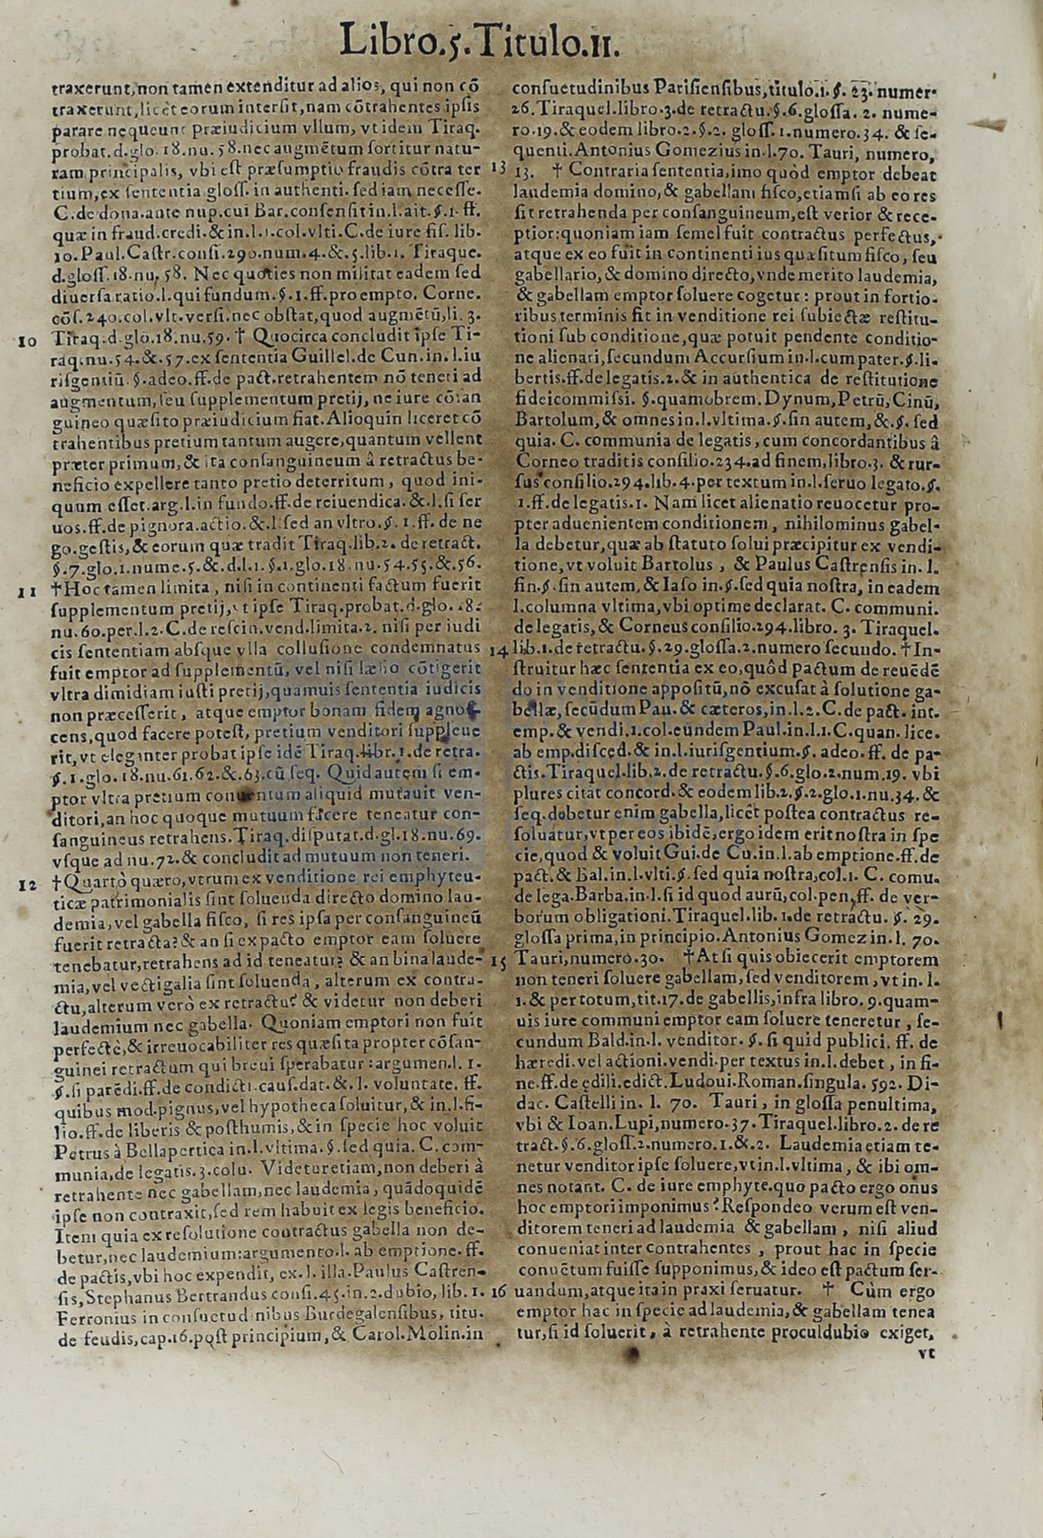 Libro.5.Titulo.II.
traxerunt, non tamen extenditur ad alios, qui non cō
traxerunt, licèt eorum intersit, nam cōtrahentes ipsis
parare nequeunt præiudicium vllum, vt idem Tiraq.
probat.d.glo.18.nu.58.nec augmētum sortitur natu-
ram principalis, vbi est præsumptio fraudis cōtra ter
tium, ex sententia gloss. in authenti. sed iam necesse.
C.de dona.ante nup.cui Bar.consensit in.l.ait.§.1.ff.
quæ in fraud.credi.& in.l.1.col.vlti.C.de iure fis. lib.
10.Paul.Castr.consi.290.num.4.&.5.lib.1. Tiraque.
d.gloss.18.nu.58. Nec quoties non militat eadem sed
diuersa ratio.l.qui fundum.§.1.ff.pro empto. Corne.
cōs.240.col.vlt.versi.nec obstat, quod augmētū, li. 3.
10 Tiraq.d.glo.18.nu.59.† Quocirca concludit ipse Ti-
raq.nu.54.&.57.ex sententia Guillel.de Cun.in.l.iu
risgentiū.§.adeo.ff.de pact.retrahentem nō teneri ad
augmentum, seu supplementum pretij, ne iure cōsan
guineo quæsito præiudicium fiat. Alioquin liceret cō
trahentibus pretium tantum augere, quantum vellent
præter primum, & ita consanguineum â retractus be-
neficio expellere tanto pretio deterritum, quod ini-
quum esset.arg.l.in fundo.ff.de reiuendica.&.l.si ser
uos.ff.de pignora.actio.&.l.sed an vltro.§.1.ff. de ne
go.gestis, & eorum quæ tradit Tiraq.lib.2. de retract.
§.7.glo.1.nume.5.&.d.l.1.§.1.glo.18.nu.54.55.&.56.
11 †Hoc tamen limita, nisi in continenti factum fuerit
supplementum pretij, vt ipse Tiraq.probat.d.glo.18.
nu.60.per.l.2.C.de rescin.vend.limita.2. nisi per iudi
cis sententiam absque vlla collusione condemnatus
fuit emptor ad supplementū, vel nisi læsio cōtigerit
vltra dimidiam iusti pretij, quamuis sententia iudicis
non præcesserit, atque emptor bonam fidem agnos-
cens, quod facere potest, pretium venditori suppleue
rit, vt eleganter probat ipse idē Tiraq.libr.1.de retra.
§.1.glo.18.nu.61.62.&.63.cū seq. Quid autem si em-
ptor vltra pretium conuentum aliquid mutauit ven-
ditori, an hoc quoque mutuum facere teneatur con-
sanguineus retrahens. Tiraq.disputat.d.gl.18.nu.69.
vsque ad nu.72.& concludit ad mutuum non teneri.
12 †Quartò quæro, vtrum ex venditione rei emphyteu-
ticæ patrimonialis sint soluenda directo domino lau-
demia, vel gabella fisco, si res ipsa per consanguineū
fuerit retracta? & an si ex pacto emptor eam soluere
tenebatur, retrahens ad id teneatur? & an bina laude-
mia, vel vectigalia sint soluenda, alterum ex contra-
ctu, alterum verò ex retractu? & videtur non deberi
laudemium nec gabella. Quoniam emptori non fuit
perfectè, & irreuocabiliter res quæsita propter cōsan-
guinei retractum qui breui sperabatur: argumen.l. 1.
§.si parēdi.ff.de condicti.caus.dat.&.l.voluntate. ff.
quibus mod.pignus, vel hypotheca soluitur, & in.l.fi-
lio.ff.de liberis & posthumis, & in specie hoc voluit
Petrus à Bellapertica in.l.vltima.§.sed quia. C. com-
munia, de legatis.3.colu. Videtur etiam, non deberi à
retrahente nec gabellam, nec laudemia, quādoquidē
ipse non contraxit, sed rem habuit ex legis beneficio.
Item quia ex resolutione contractus gabella non de-
betur, nec laudemium: argumento.l. ab emptione. ff.
de pactis, vbi hoc expendit, ex.l. illa.Paulus Castren-
sis, Stephanus Bertrandus consi.45.in.2.dubio, lib. 1.
Ferronius in consuetudinibus Burdegalensibus, titu.
de feudis, cap.16.post principium, & Carol.Molin.in
consuetudinibus Parisiensibus, titulo.1.§. 23. numer.
26.Tiraquel.libro.3.de retractu.§.6.glossa. 2. nume-
ro.19.& eodem libro.2.§.2. gloss.1.numero.34. & se-
quenti. Antonius Gomezius in.l.70. Tauri, numero,
13 13. † Contraria sententia, imo quòd emptor debeat
laudemia domino, & gabellam fisco, etiamsi ab eo res
sit retrahenda per consanguineum, est verior & rece-
ptior: quoniam iam semel fuit contractus perfectus,
atque ex eo fuit in continenti ius quæsitum fisco, seu
gabellario, & domino directo, vnde merito laudemia,
& gabellam emptor soluere cogetur: prout in fortio-
ribus terminis fit in venditione rei subiectæ restitu-
tioni sub conditione, quæ potuit pendente conditio-
ne alienari, secundum Accursium in.l.cum pater.§.li-
bertis.ff.de legatis.2.& in authentica de restitutione
fideicommissi. §.quamobrem.Dynum, Petrū, Cinū,
Bartolum, & omnes in.l.vltima.§.sin autem, &.§. sed
quia. C. communia de legatis, cum concordantibus â
Corneo traditis consilio.234.ad finem, libro.3. & rur-
sus consilio.294.lib.4.per textum in.l.seruo legato.§.
1.ff.de legatis.1. Nam licet alienatio reuocetur pro-
pter aduenientem conditionem, nihilominus gabel-
la debetur, quæ ab statuto solui præcipitur ex vendi-
tione, vt voluit Bartolus, & Paulus Castrensis in. l.
fin.§.sin autem, & Iaso in.§.sed quia nostra, in eadem
l.columna vltima, vbi optime declarat. C. communi.
de legatis, & Corneus consilio.294.libro. 3. Tiraquel.
14 lib.1.de retractu.§.29.glossa.2.numero secundo. †In-
struitur hæc sententia ex eo, quôd pactum de reuēdē
do in venditione appositū, nō excusat à solutione ga-
bellæ, secūdum Pau.& cæteros, in.l.2.C.de pact. int.
emp.& vendi.1.col.eūndem Paul.in.l.1.C.quan. lice.
ab emp.disced.& in.l.iurisgentium.§. adeo.ff. de pa-
ctis.Tiraquel.lib.2.de retractu.§.6.glo.2.num.19. vbi
plures citat concord.& eodem lib.2.§.2.glo.1.nu.34.&
seq.debetur enim gabella, licèt postea contractus re-
soluatur, vt per eos ibidē, ergo idem erit nostra in spe
cie, quod & voluit Gui.de Cu.in.l.ab emptione.ff.de
pact.& Bal.in.l.vlti.§.sed quia nostra, col.1. C. comu.
de lega.Barba.in.l.si id quod aurū, col.pen, ff. de ver-
borum obligationi.Tiraquel.lib.1.de retractu. §. 29.
glossa prima, in principio.Antonius Gomez in.l. 70.
15 Tauri, numero.30. †At si quis obiecerit emptorem
non teneri soluere gabellam, sed venditorem, vt in.l.
1.& per totum, tit.17.de gabellis, infra libro. 9.quam-
uis iure communi emptor eam soluere teneretur, se-
cundum Bald.in.l. venditor. §. si quid publici. ff. de
hæredi.vel actioni.vendi.per textus in.l.debet, in fi-
ne.ff.de ędili.edict.Ludoui.Roman.singula. 592. Di-
dac. Castelli in. l. 70. Tauri, in glossa penultima,
vbi & Ioan.Lupi, numero.37.Tiraquel.libro.2.de re
tract.§.6.gloss.2.numero.1.&.2. Laudemia etiam te-
netur venditor ipse soluere, vt in.l.vltima, & ibi om-
nes notant. C. de iure emphyte.quo pacto ergo onus
hoc emptori imponimus? Respondeo verum est ven-
ditorem teneri ad laudemia & gabellam, nisi aliud
conueniat inter contrahentes, prout hac in specie
conuētum fuisse supponimus, & ideo est pactum ser-
16 uandum, atque ita in praxi seruatur. † Cùm ergo
emptor hac in specie ad laudemia, & gabellam tenea
tur, si id soluerit, à retrahente proculdubio exiget,
vt